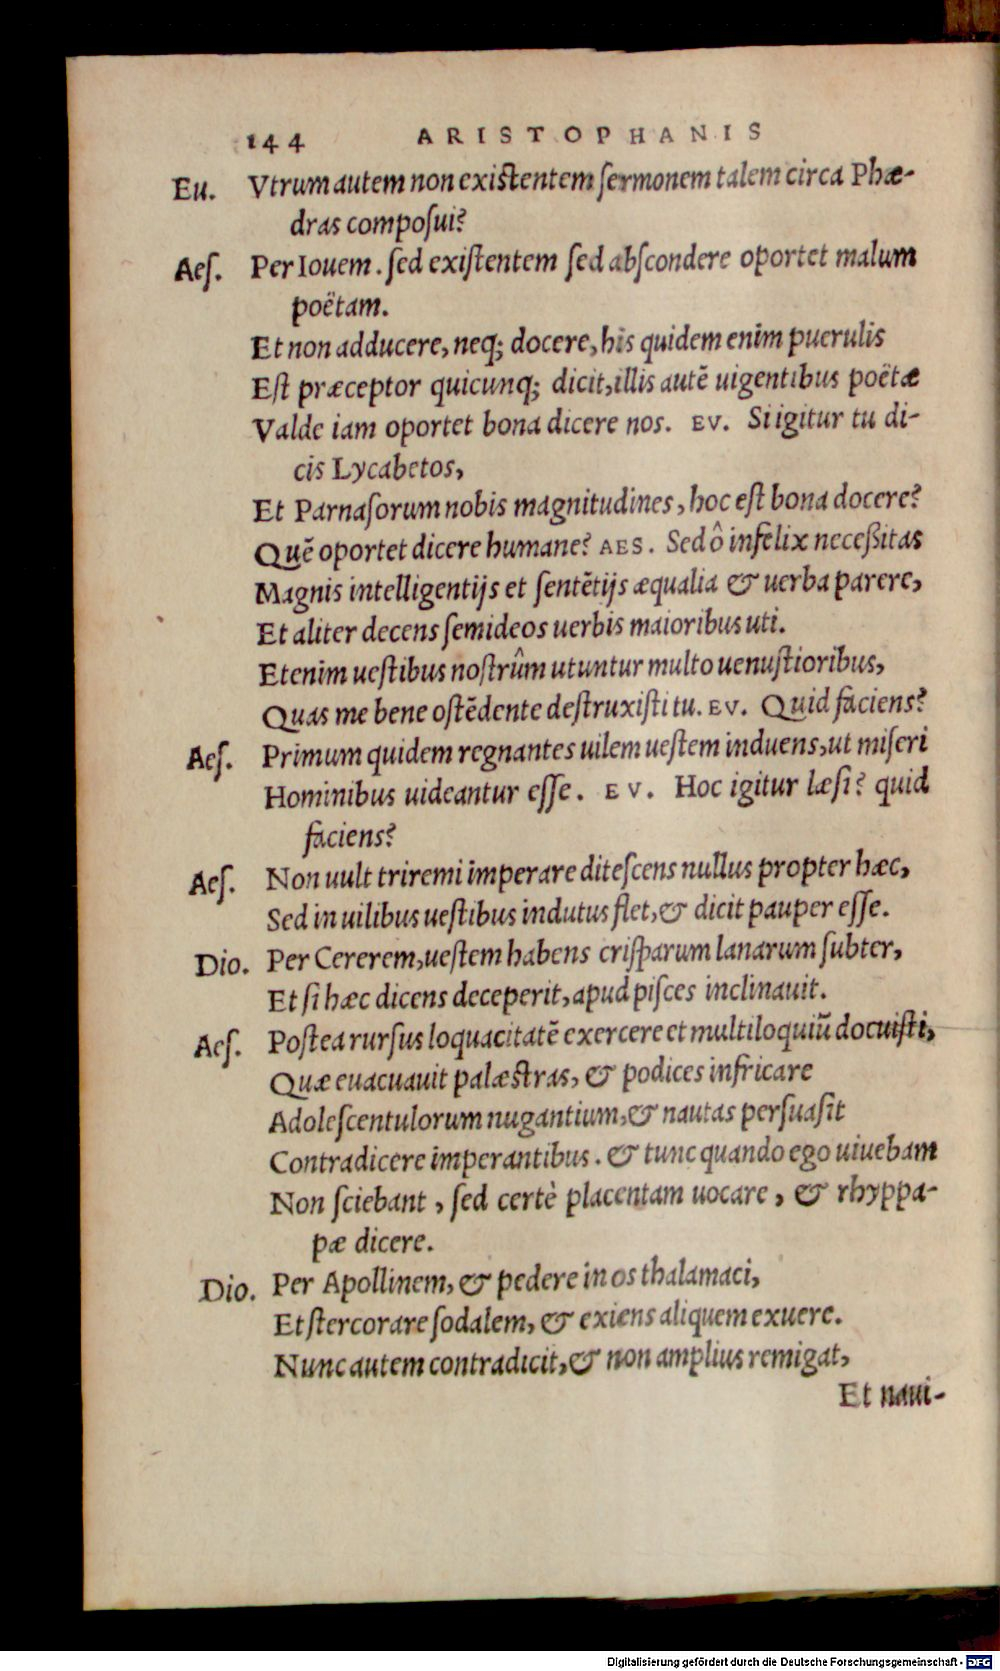 144 ARISTOPHANIS
Eu. Vtrum autem non existentem sermonem talem circa Phæ-
dras composui?
Aes. Per Iouem. sed existentem sed abscondere oportet malum
poëtam.
Et non adducere, neq; docere, his quidem enim puerulis
Est præceptor quicunq; dicit, illis autē uigentibus poëtæ
Valde iam oportet bona dicere nos. EV. Si igitur tu di-
cis Lycabetos,
Et Parnasorum nobis magnitudines, hoc est bona docere?
Quē oportet dicere humane? AES. Sed ô infelix necessitas
Magnis intelligentijs et sentētijs æqualia & uerba parere,
Et aliter decens semideos uerbis maioribus uti.
Etenim uestibus nostrûm utuntur multo uenustioribus,
Quas me bene ostēdente destruxisti tu. EV. Quid faciens?
Aes. Primum quidem regnantes uilem uestem induens, ut miseri
Hominibus uideantur esse. EV. Hoc igitur læsi? quid
faciens?
Aes. Non uult triremi imperare ditescens nullus propter hæc,
Sed in uilibus uestibus indutus flet, & dicit pauper esse.
Dio. Per Cererem, uestem habens crisparum lanarum subter,
Et si hæc dicens deceperit, apud pisces inclinauit.
Aes. Postea rursus loquacitatē exercere et multiloquiū docuisti,
Quæ euacuauit palæstras, & podices infricare
Adolescentulorum nugantium, & nautas persuasit
Contradicere imperantibus. & tunc quando ego uiuebam
Non sciebant, sed certè placentam uocare, & rhyppa-
pæ dicere.
Dio. Per Apollinem, & pedere in os thalamaci,
Et stercorare sodalem, & exiens aliquem exuere.
Nunc autem contradicit, & non amplius remigat,
Et naui-
Digitalisierung gefördert durch die Deutsche Forschungsgemeinschaft - DFG